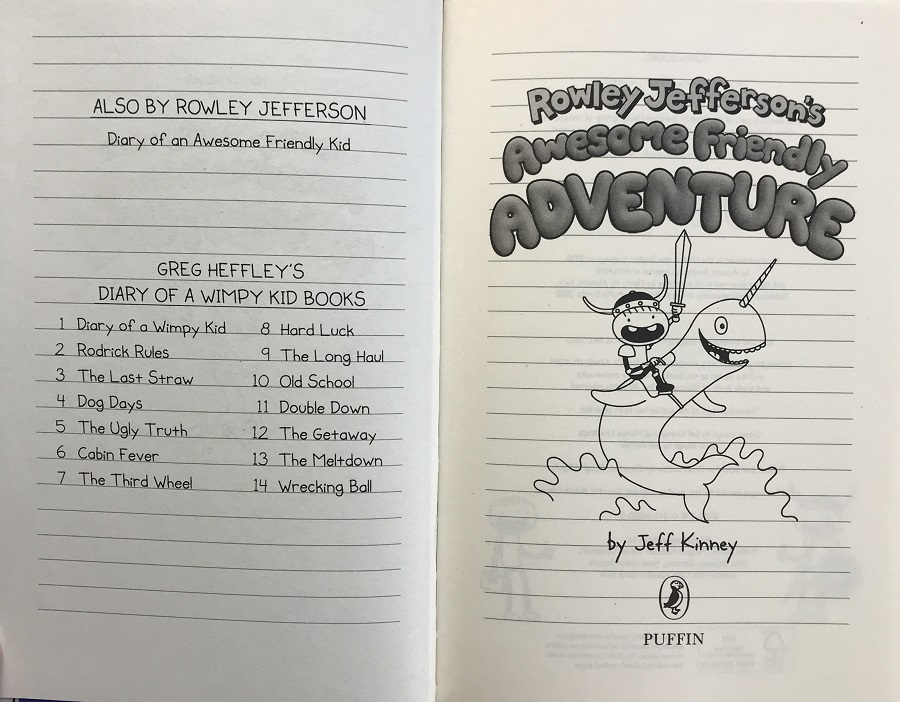 ALSO BY ROWLEY JEFFERSON
Diary of an Awesome Friendly Kid
GREG HEFFLEY'S
DIARY OF A WIMPY KID BOOKS
1 Diary of a Wimpy Kid
2 Rodrick Rules
3 The Last Straw
4 Dog Days
5 The Ugly Truth
6 Cabin Fever
7 The Third Wheel
8 Hard Luck
9 The Long Haul
10 Old School
11 Double Down
12 The Getaway
13 The Meltdown
14 Wrecking Ball
Rowley Jefferson's
Awesome Friendly
ADVENTURE
by Jeff Kinney
PUFFIN